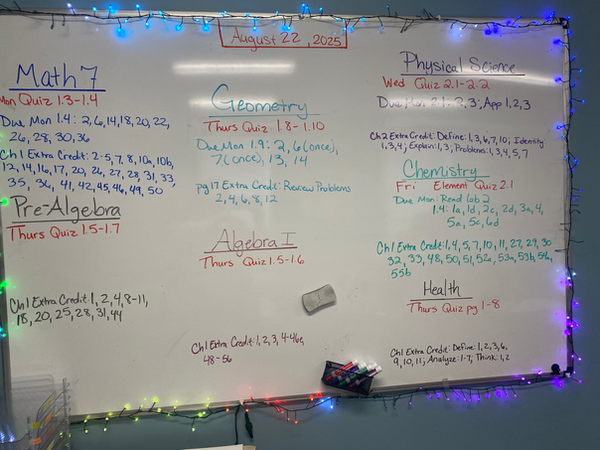 August 22, 2025
Math 7
Mon Quiz 1.3-1.4
Due Mon 1.4: 2, 6, 14, 18, 20, 22,
26, 28, 30, 36
Ch 1 Extra Credit: 2-5, 7, 8, 10a, 10b,
12, 14, 16, 17, 20, 26, 27, 28, 31, 33,
35, 36, 41, 42, 45, 46, 49, 50
Pre-Algebra
Thurs Quiz 1.5-1.7
Ch 1 Extra Credit 1, 2, 4, 8-11,
18, 20, 25, 28, 31, 44
Geometry
Thurs Quiz 1.8-1.10
Due Mon 1.9: 2, 6 (once),
7 (once), 13, 14
pg 17 Extra Credit: Review Problems
2, 4, 6, 8, 12
Algebra I
Thurs Quiz 1.5-1.6
Ch 1 Extra Credit: 1, 2, 3, 4-46e,
48-56
Physical Science
Wed Quiz 2.1-2.2
Due Mon 2.1-2.3; App 1, 2, 3
Ch 2 Extra Credit: Define: 1, 3, 6, 7, 10; Identify
1, 3, 4; Explain: 1, 3; Problems: 1, 3, 4, 5, 7
Chemistry
Fri Element Quiz 2.1
Due Mon: Read lab 2
1.4: 1a, 1d, 2c, 2d, 3a, 4,
5a, 5c, 6d
Ch 1 Extra Credit: 1, 4, 5, 7, 10, 11, 27, 29, 30
32, 33, 48, 50, 51, 52a, 53a, 53b, 54a,
55b
Health
Thurs Quiz pg 1-8
Ch 1 Extra Credit: Define: 1, 2, 3, 6,
9, 10, 11; Analyze: 1-7; Think: 1, 2